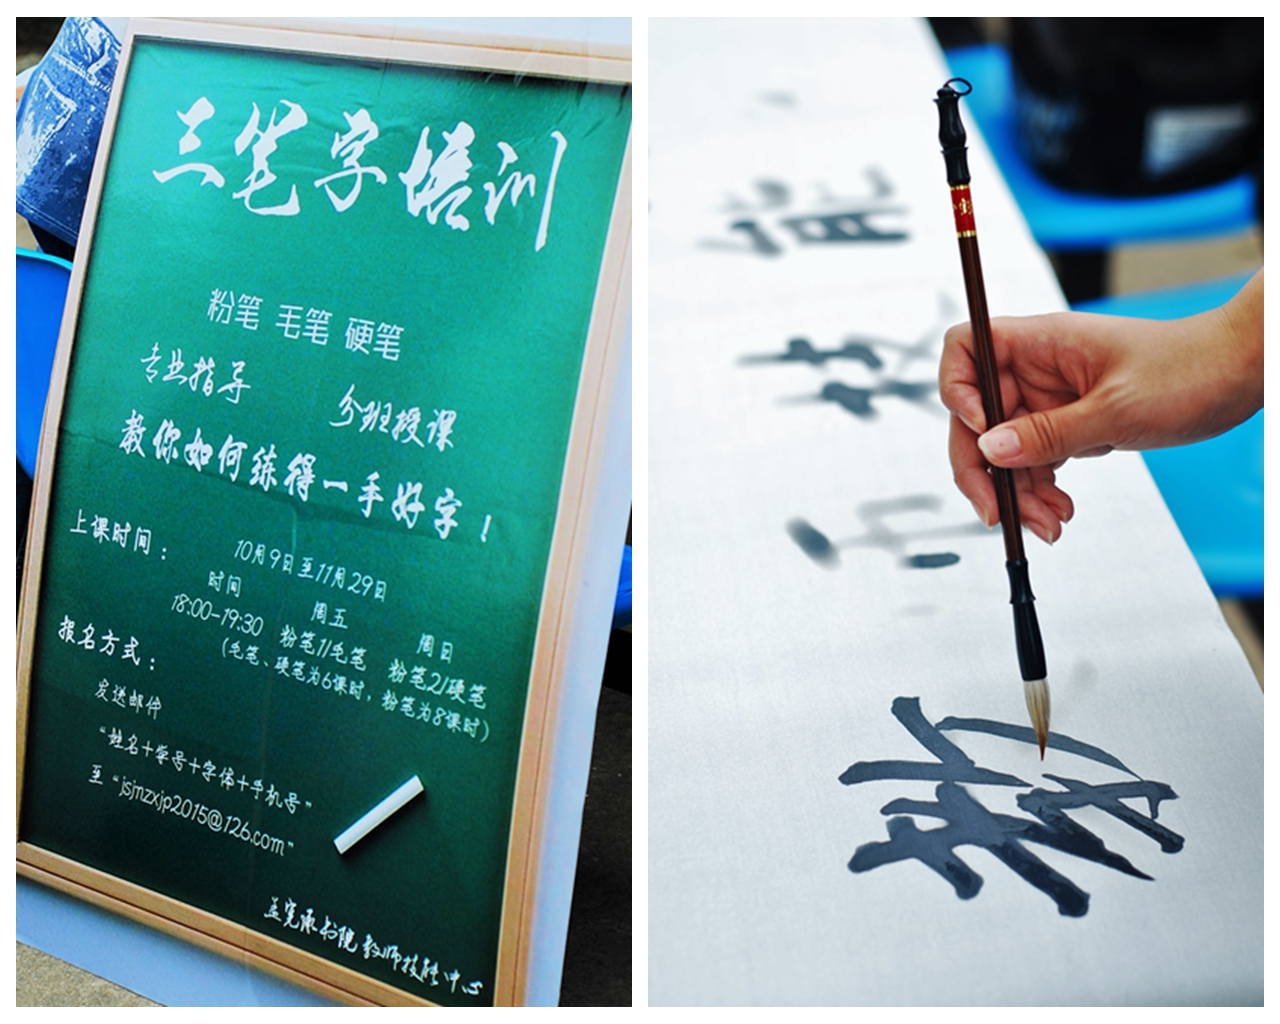 三笔字培训
粉笔 毛笔 硬笔
专业指导 分班授课
教你如何练得一手好字！
上课时间：
10月9日至11月29日
时间 周五 周日
18:00-19:30 粉笔1/毛笔 粉笔2/硬笔
（毛笔、硬笔为6课时，粉笔为8课时）
报名方式：
发送邮件
“姓名+学号+字体+手机号”
至“jsjnzxjp2015@126.com”
孟宪承书院 教师技能中心